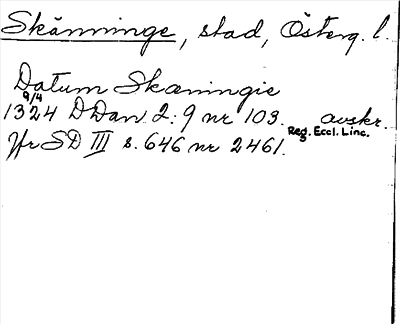 Skänninge, stad, Österg. l.
Datum Skæningie
9/4
1324 DDan 2: 9 nr 103. avskr.
Reg. Eccl. Linc.
Jfr SD III s. 646 nr 2461.